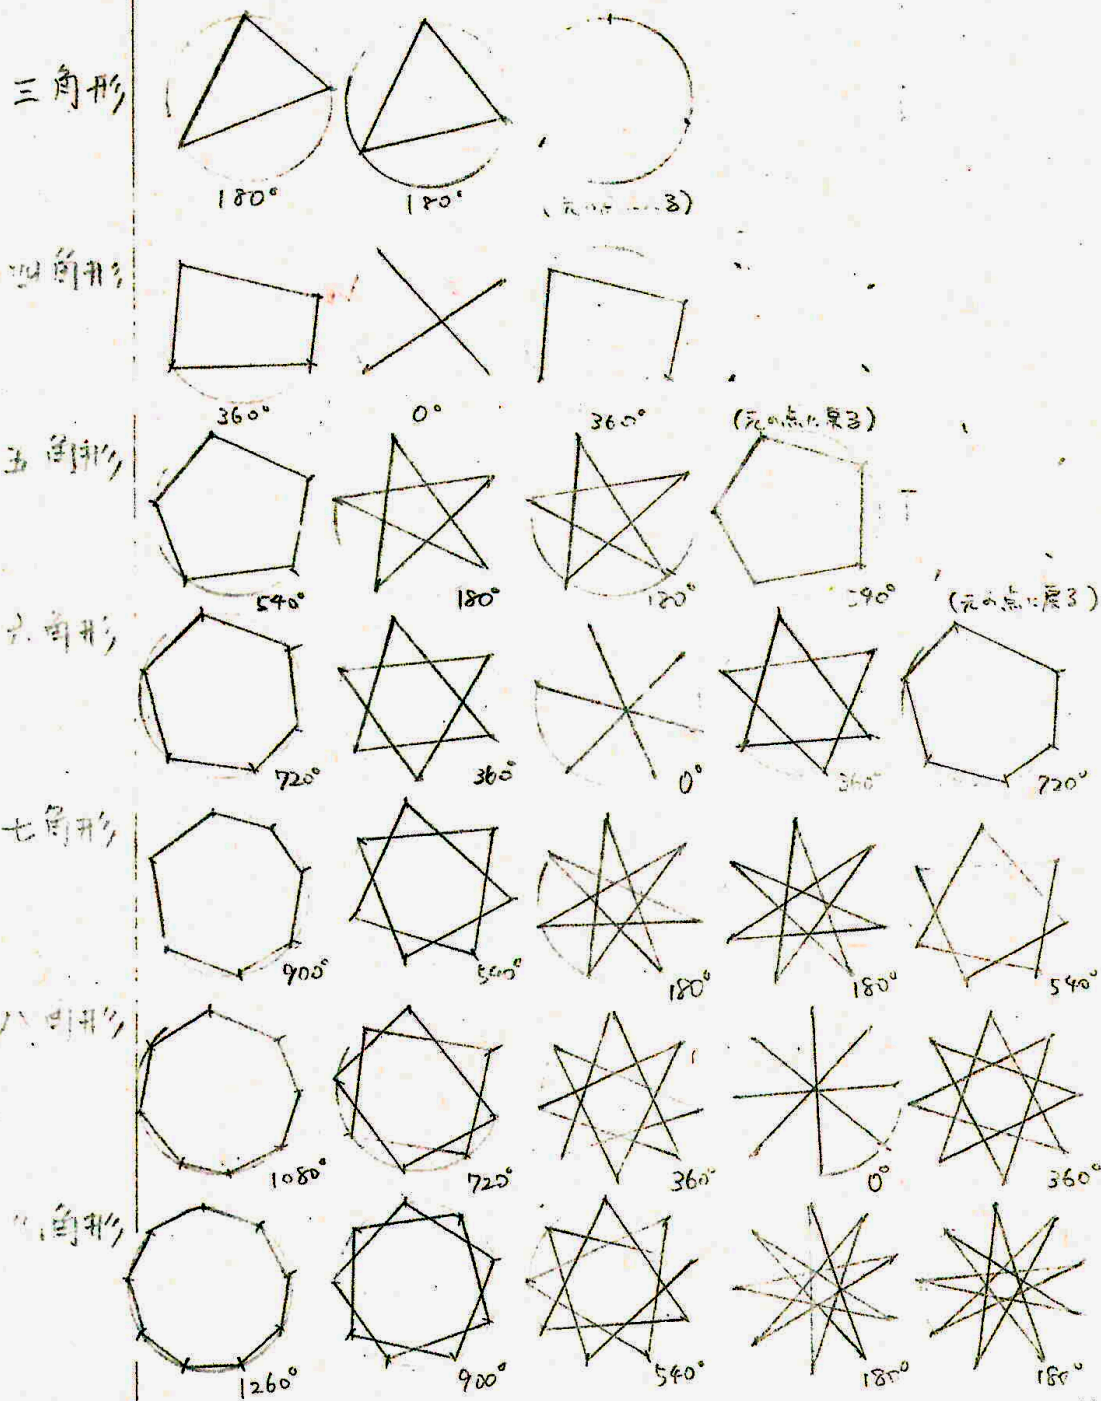 三角形
180°
180°
四角形
360°
0°
360°
(元の点に戻る)
五角形
540°
180°
180°
540°
(元の点に戻る)
六角形
720°
360°
0°
360°
720°
七角形
900°
540°
180°
180°
540°
八角形
1080°
720°
360°
0°
360°
角形
1260°
900°
540°
180°
180°